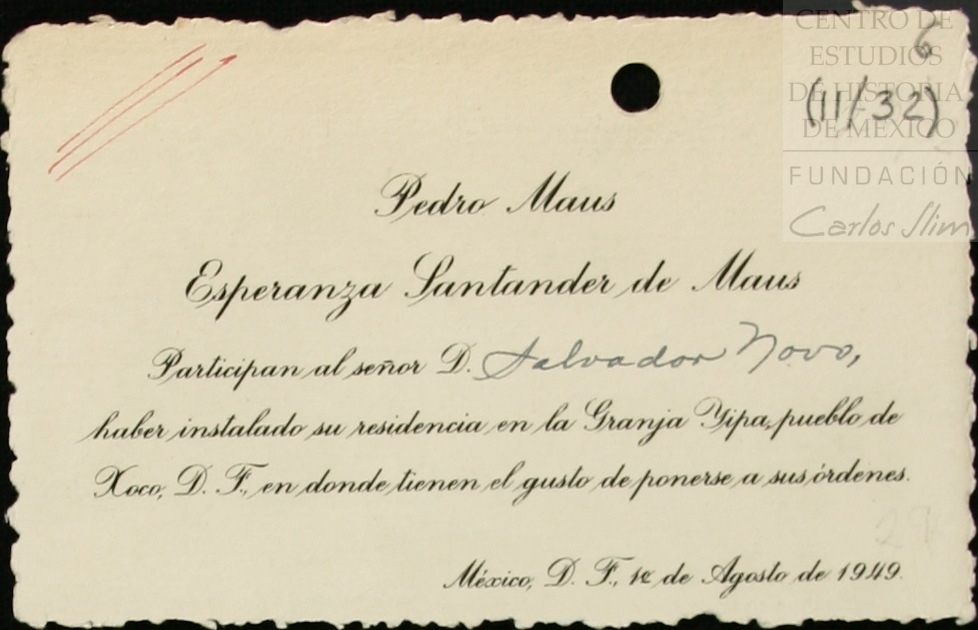 CENTRO DE
ESTUDIOS
DE HISTORIA
DE MÉXICO
FUNDACIÓN
Carlos Slim
6
(11/32)
Pedro Maus
Esperanza Santander de Maus
Participan al señor D. Salvador Novo,
haber instalado su residencia en la Granja Yipa, pueblo de
Xoco, D. F., en donde tienen el gusto de ponerse a sus órdenes.
México, D. F., 1º de Agosto de 1949.